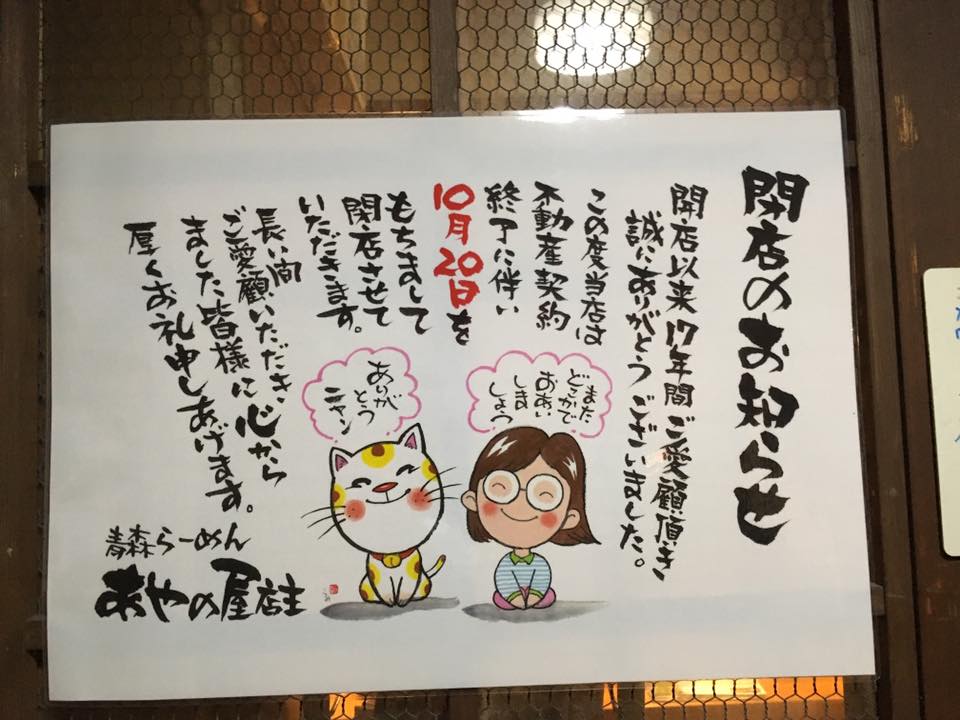 閉店のお知らせ
開店以来17年間ご愛顧頂き
誠にありがとうございました。
この度当店は
不動産契約
終了に伴い
10月20日を
もちまして
閉店させて
いただきます。
長い間
ご愛顧いただき
ました皆様に心から
厚くお礼申しあげます。
青森らーめん
あやの屋店主
また
どこかで
おあい
しま
しょう
ありが
とう
ニャン